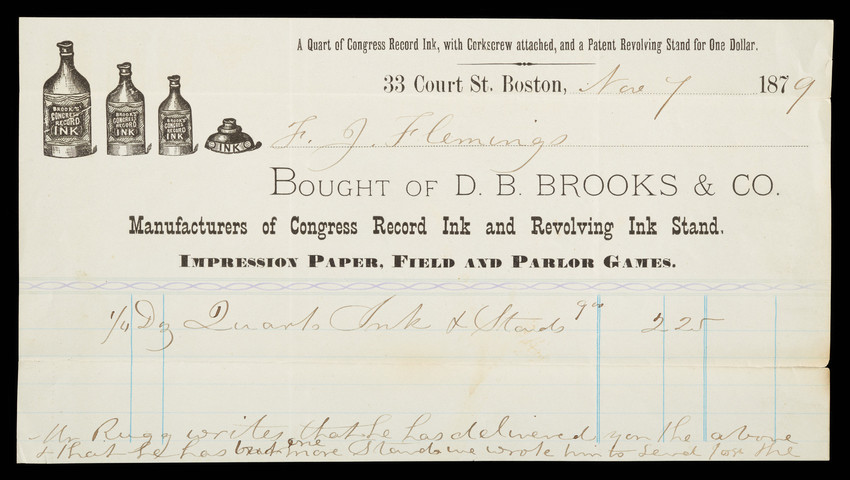 A Quart of Congress Record Ink, with Corkscrew attached, and a Patent Revolving Stand for One Dollar.
33 Court St. Boston, Nov 7 1879
F. J. Flemings
BOUGHT OF D. B. BROOKS & CO.
Manufacturers of Congress Record Ink and Revolving Ink Stand.
IMPRESSION PAPER, FIELD AND PARLOR GAMES.
BROOK'S CONGRESS RECORD INK
BROOK'S CONGRESS RECORD INK
BROOK'S CONGRESS RECORD INK
INK
1/4 Dz Quarts Ink & Stands 9 00 2 25
Mr Rugg writes that he has delivered you the above
& that he has but one more Stand we wrote him to send the